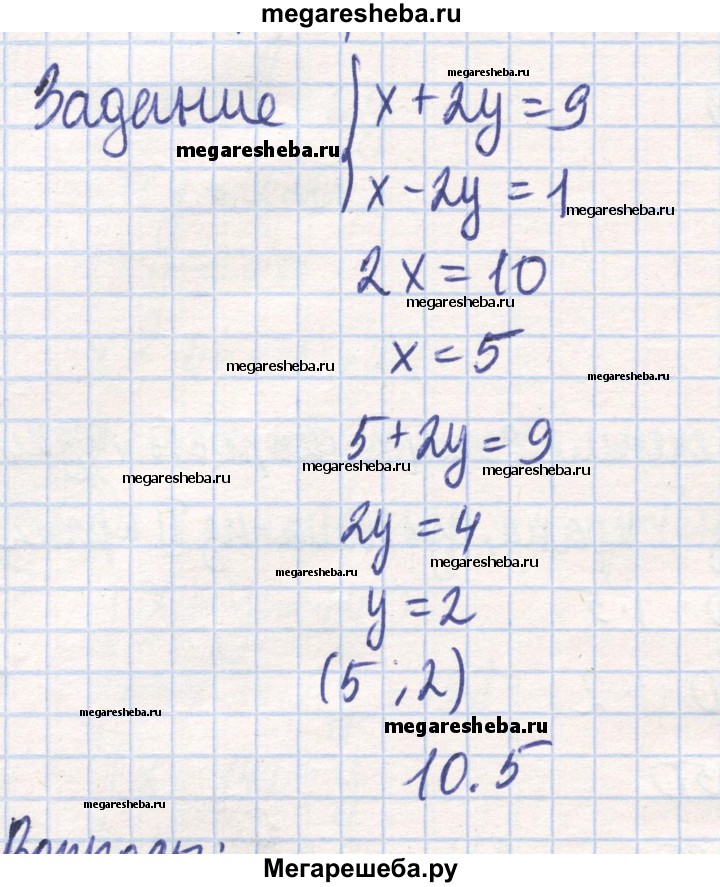 megaresheba.ru
megaresheba.ru
Задание { x + 2y = 9
megaresheba.ru
x - 2y = 1
megaresheba.ru
2x = 10
megaresheba.ru
x = 5
megaresheba.ru
megaresheba.ru
5 + 2y = 9
megaresheba.ru
megaresheba.ru
megaresheba.ru
2y = 4
megaresheba.ru
megaresheba.ru
y = 2
(5 ; 2)
megaresheba.ru
megaresheba.ru
10.5
megaresheba.ru
Вопросы:
Мегарешеба.ру